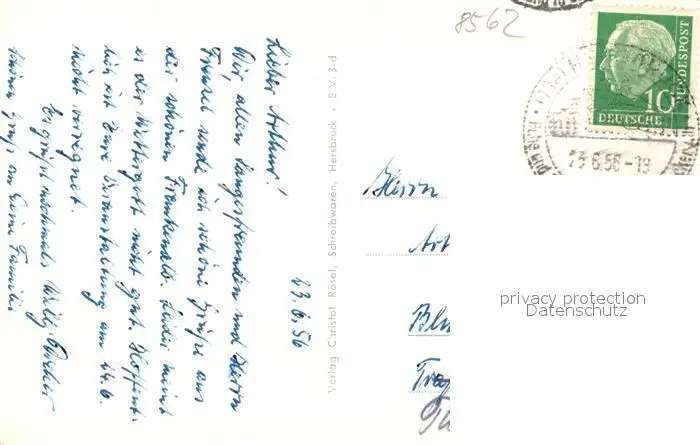 23.6.56
Lieber Arthur!
Wir allen Sangesfreunden und Herrn
Frenzel sende ich schöne Grüße aus
der schönen Frankenalb. Leider meint
es der Wettergott nicht gut. Hoffent-
lich ist Eure Veranstaltung am 24.6.
nicht verregnet.
Es grüßt nochmals Willi
schönen Gruß an Deine Familie
Verlag Christof Rösel, Schreibwaren, Hersbruck · S.V. 3-d
8562
DEUTSCHE BUNDESPOST
10
23.6.56-19
Herrn
Art
Blu
privacy protection
Datenschutz